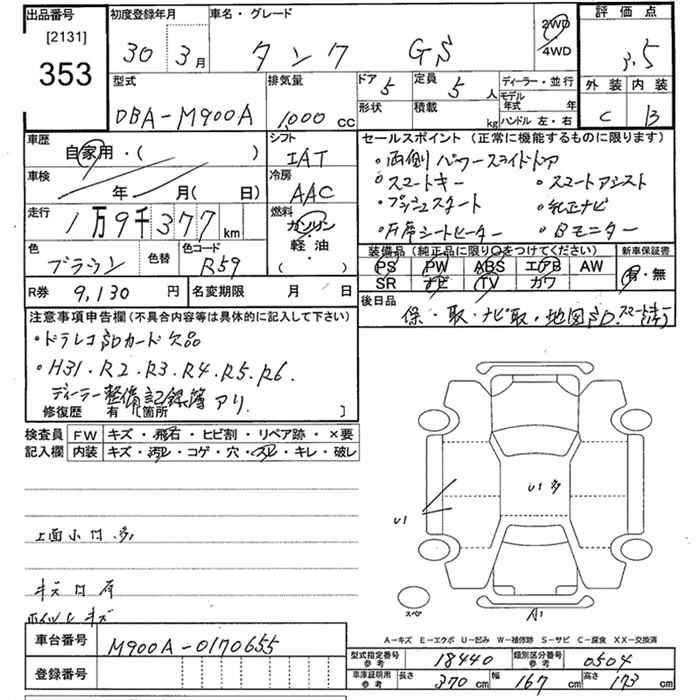 出品番号 [2131] 353
初度登録年月 30年 3月
車名・グレード タンク GS
2WD 4WD
評価点 3.5
外装 C 内装 B
型式 DBA-M900A
排気量 1000 cc
ドア 5 定員 5人
形状 積載 kg
ディーラー・並行
モデル年式 年
ハンドル 左・右
車歴 自家用・( )
車検 年 月( 日)
走行 1万9千377 km
色 ブラウン 色替 色コード R59
シフト IAT
冷房 AAC
燃料 ガソリン・軽油・( )
R券 9,130 円 名変期限 月 日
セールスポイント(正常に機能するものに限ります)
・両側パワースライドドア
・スマートキー ・スマートアシスト
・プッシュスタート ・純正ナビ
・片席シートヒーター ・Bモニター
装備品(純正品に限り○をつけてください) 新車保証書
PS PW ABS エアB AW 有・無
SR ナビ TV カワ
後日品
保・取・ナビ取・地図SD.
注意事項申告欄(不具合内容等は具体的に記入して下さい)
・ドラレコSDカード欠品
・H31・R2・R3・R4・R5・R6.
ディーラー整備記録簿アリ.
修復歴 有〔箇所 〕
検査員 FW キズ・飛石・ヒビ割・リペア跡・×要
記入欄 内装 キズ・汚レ・コゲ・穴・スレ・キレ・破レ
上面小凹多
キズ凹有
ホイルキズ
U1
U1多
スペア
A1
A-キズ E-エクボ U-凹み W-補修跡 S-サビ C-腐食 XX-交換済
車台番号 M900A-0170655
登録番号
型式指定番号 参考 18440 類別区分番号 参考 0504
車庫証明用 参考 長さ 370cm 幅 167cm 高さ 173cm